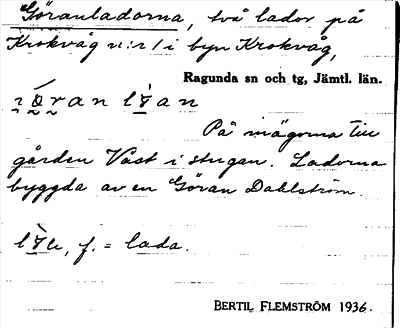 Göranladorna, två lador på
Krokvåg n:r 1 i byn Krokvåg,
Ragunda sn och tg, Jämtl. län.
På inägorna till
gården Väst i stugan. Ladorna
byggda av en Göran Dahlström.
f. = lada.
BERTIL FLEMSTRÖM 1936.